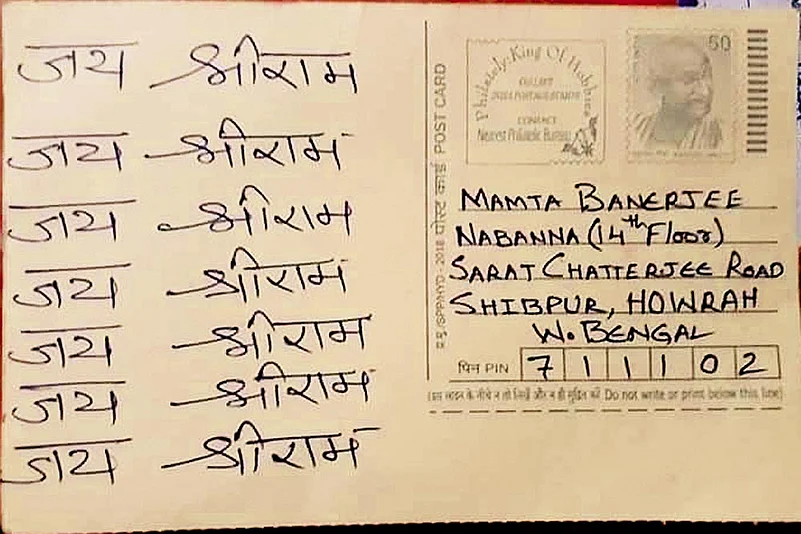 जय श्रीराम
जय श्रीराम
जय श्रीराम
जय श्रीराम
जय श्रीराम
जय श्रीराम
जय श्रीराम
Philately: King Of Hobbies
COLLECT
INDIA POSTAGE STAMPS
CONTACT
Nearest Philatelic Bureau
50
पोस्ट कार्ड POST CARD
MAMTA BANERJEE
NABANNA (14th Floor)
SARAT CHATTERJEE ROAD
SHIBPUR, HOWRAH
W. BENGAL
पिन PIN 711102
(इस लाइन के नीचे न तो लिखें और न ही मुद्रित करें Do not write or print below this line)